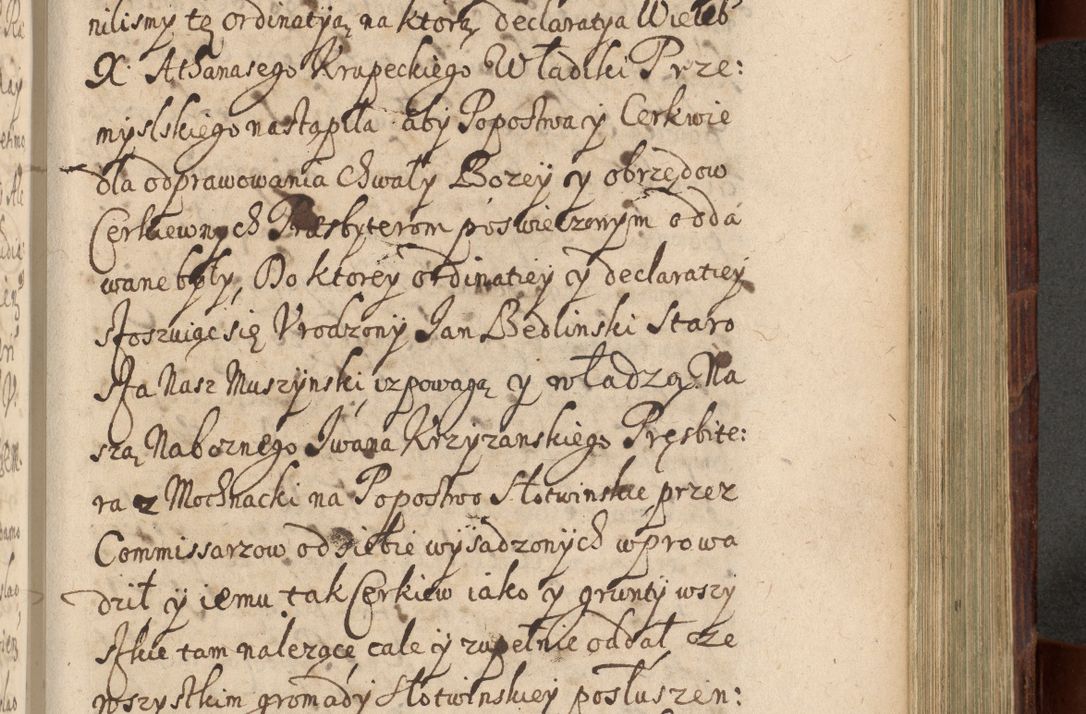 niliśmy tę ordinatyią, na ktorą declaratya Wieleb
X: Athanasego Krupeckiego Władiki Prze:
myslskiego nastąpiła aby Popostwa y Cerkwie
dla odprawowania chwały Bozey y obrzędow
Cerkiewnych Præsbyterom poświeczonym odda
wane były, Do ktorey ordinatiey y declaratiey
stosuiąc się Vrodzony Jan Bedlinski Staro
sta Nasz Muszynski, z powagą y władzą Na
szą Nabornego Jwana Krzyzanskiego Pręsbite:
ra z Mochnacki na Popostwo Słotwinskie, przez
Commissarzow od siebie wysadzonych wprowa
dził y iemu tak Cerkiew iako y grunty wszy
stkie tam nalezące cale y zupełnie oddał, ze
wszystkim gromady Słotwinskiey posłuszen: